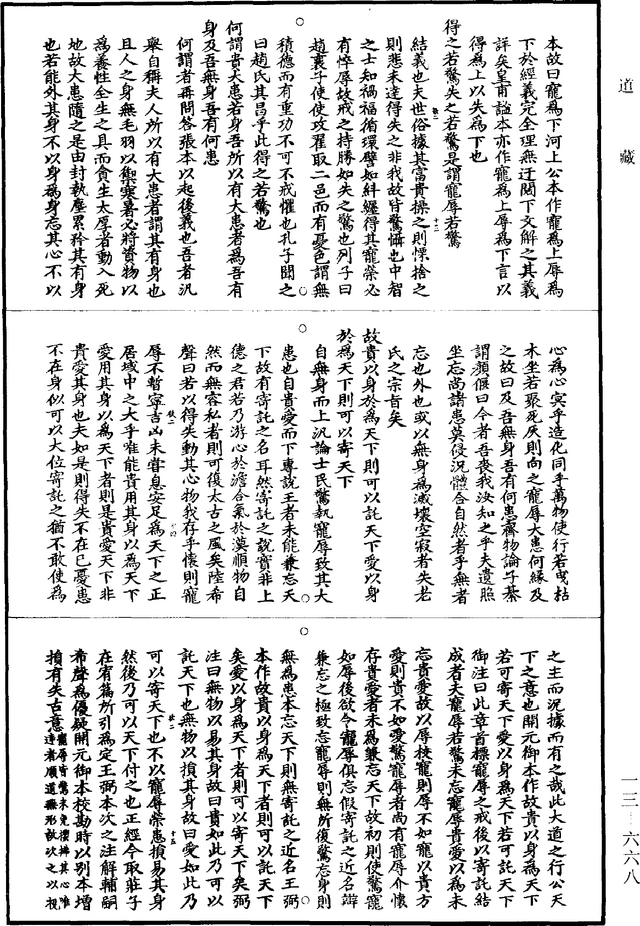 道藏
本故曰寵為下河上公本作寵為上辱為
下於經義完全理無迂闊下文解之其義
詳矣皇甫謐本亦作寵為上辱為下言以
得為上以失為下也
得之若驚失之若驚是謂寵辱若驚
結義也夫世俗據其富貴操之則慄捨之
則悲未達得失之非我故皆驚懾也中智
之士知禍福循環譬如糾纏得其寵榮必
有悴辱故戒之持勝如失之驚也列子曰
趙襄子使使攻翟取二邑而有憂色謂無
積德而有重功不可不戒懼也孔子聞之
曰趙氏其昌乎此得之若驚也
何謂貴大患若身吾所以有大患者為吾有
身及吾無身吾有何患
何謂者再問答張本以起後義也吾者汎
舉自稱夫人所以有大患者謂其有身也
且人之身無毛羽以禦寒暑必將資物以
為養性全生之具而貪生太厚者動入死
地故大患隨之是由封執塵累矜其有身
也若能外其身不以身為身忘其心不以
心為心冥乎造化同乎萬物使行若曳枯
木坐若聚死灰則向之寵辱大患何緣及
之故曰及吾無身吾有何患齊物論子綦
謂顏偃曰今者吾喪我汝知之乎夫遺照
坐忘尚諸患莫侵況體合自然者乎無者
忘也外也或以無身為滅壞空寂者失老
氏之宗旨矣
故貴以身於為天下則可以託天下愛以身
於為天下則可以寄天下
自無身而上汎論士民驚執寵辱致其大
患也自貴愛而下專說王者未能兼忘天
下故有寄託之名耳然寄託之說實非上
德之君若乃游心於澹合氣於漠順物自
然而無容私者則可復太古之風矣陸希
聲曰若以得失動其心物我存乎懷則寵
辱不暫寧吉凶未嘗息安足為天下之正
居域中之大乎唯能貴用其身以為天下
愛用其身以為天下者則是貴愛天下非
貴愛其身也夫如是則得失不在己憂患
不在身似可以大位寄託之猶不敢使為
之主而況據而有之哉此大道之行公天
下之意也開元御本作故貴以身為天下
若可寄天下愛以身為天下若可託天下
御注曰此章首操寵辱之戒後以寄託結
成者夫寵辱若驚未忘寵辱貴愛以為未
忘貴愛故以辱校寵則辱不如寵以貴方
愛則貴不如愛驚寵辱者尚有寵辱介懷
存貴愛者未為兼忘天下故初則使驚寵
如辱後欲令寵辱俱忘假寄託之近名辯
兼忘之極致忘寵辱則無所復驚忘身則
無為患本忘天下則無寄託之近名王弼
本作故貴以身為天下者則可以託天下
矣愛以身為天下者則可以寄天下矣弼
注曰無物以易其身故曰貴如此乃可以
託天下也無物以損其身故曰愛如此乃
可以寄天下也不以寵辱榮患損易其身
然後乃可以天下付之也正經今取莊子
在宥篇所引為定王弼本次之注解輔嗣
希聲為優疑開元御本校勘時以別本增
損有失古意
一三—六六八